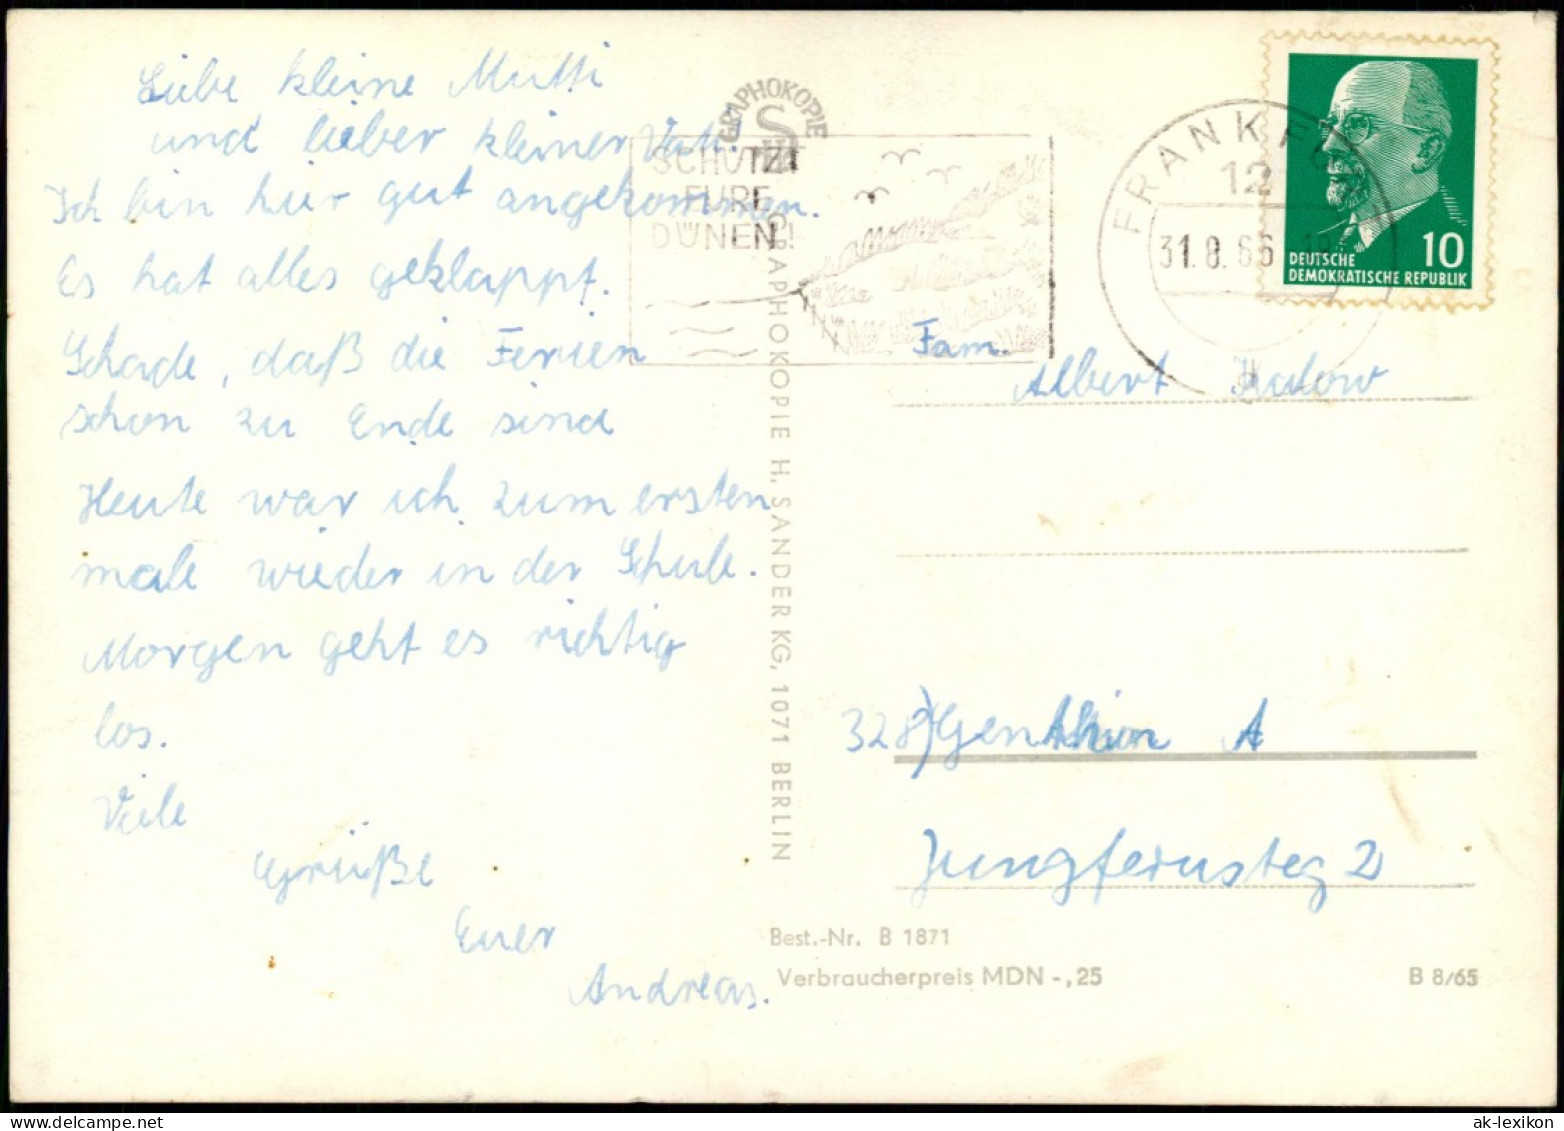 Liebe kleine Mutti
und lieber kleiner Vati!
Ich bin hier gut angekommen.
Es hat alles geklappt.
Schade, daß die Ferien
schon zu Ende sind
Heute war ich zum ersten
male wieder in der Schule.
Morgen geht es richtig
los.
Viele
Grüße
Euer
Andreas.
GRAPHOKOPIE
H S
GRAPHOKOPIE H. SANDER KG, 1071 BERLIN
SCHÜTZT
EURE
DÜNEN!
FRANKFU
12
31.8.66-18
g
DEUTSCHE
DEMOKRATISCHE REPUBLIK
10
Fam.
Albert Kalow
328) Genthin A
Jungfernsteg 2
Best.-Nr. B 1871
Verbraucherpreis MDN -,25
B 8/65
ak-lexikon